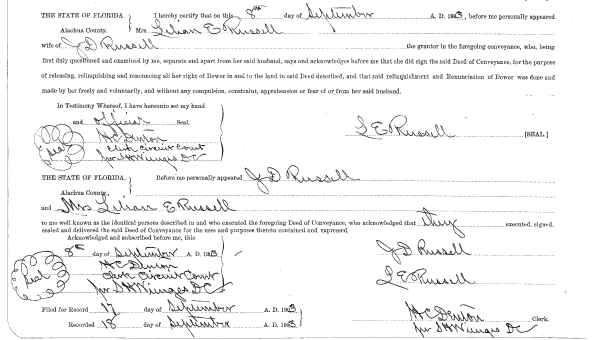 THE STATE OF FLORIDA, I hereby certify that on this 8th day of September A. D. 1913, before me personally appeared
Alachua County. Mrs. Lilian E Russell
wife of J D Russell the grantor in the foregoing conveyance, who, being
first duly questioned and examined by me, separate and apart from her said husband, says and acknowledges before me that she did sign the said Deed of Conveyance, for the purpose
of releasing, relinquishing and renouncing all her right of Dower in and to the land in said Deed described, and that said relinquishment and Renunciation of Dower was done and
made by her freely and voluntarily, and without any compulsion, constraint, apprehension or fear of or from her said husband.
In Testimony Whereof, I have hereunto set my hand
and official Seal.
L E Russell [SEAL]
Seal
H C Denton
Clerk Circuit Court
per S H Wienges DC
THE STATE OF FLORIDA, Before me personally appeared J D Russell
Alachua County,
and Mrs Lilian E Russell
to me well known as the identical persons described in and who executed the foregoing Deed of Conveyance, who acknowledged that they executed, signed,
sealed and delivered the said Deed of Conveyance for the uses and purposes therein contained and expressed.
Acknowledged and subscribed before me, this
8th day of September A. D. 1913
J D Russell
Seal
H C Denton
Clerk Circuit Court
L E Russell
per S H Wienges DC
Filed for Record 17 day of September A. D. 1913
H C Denton Clerk.
Recorded 18 day of September A. D. 1913
per S H Wienges DC